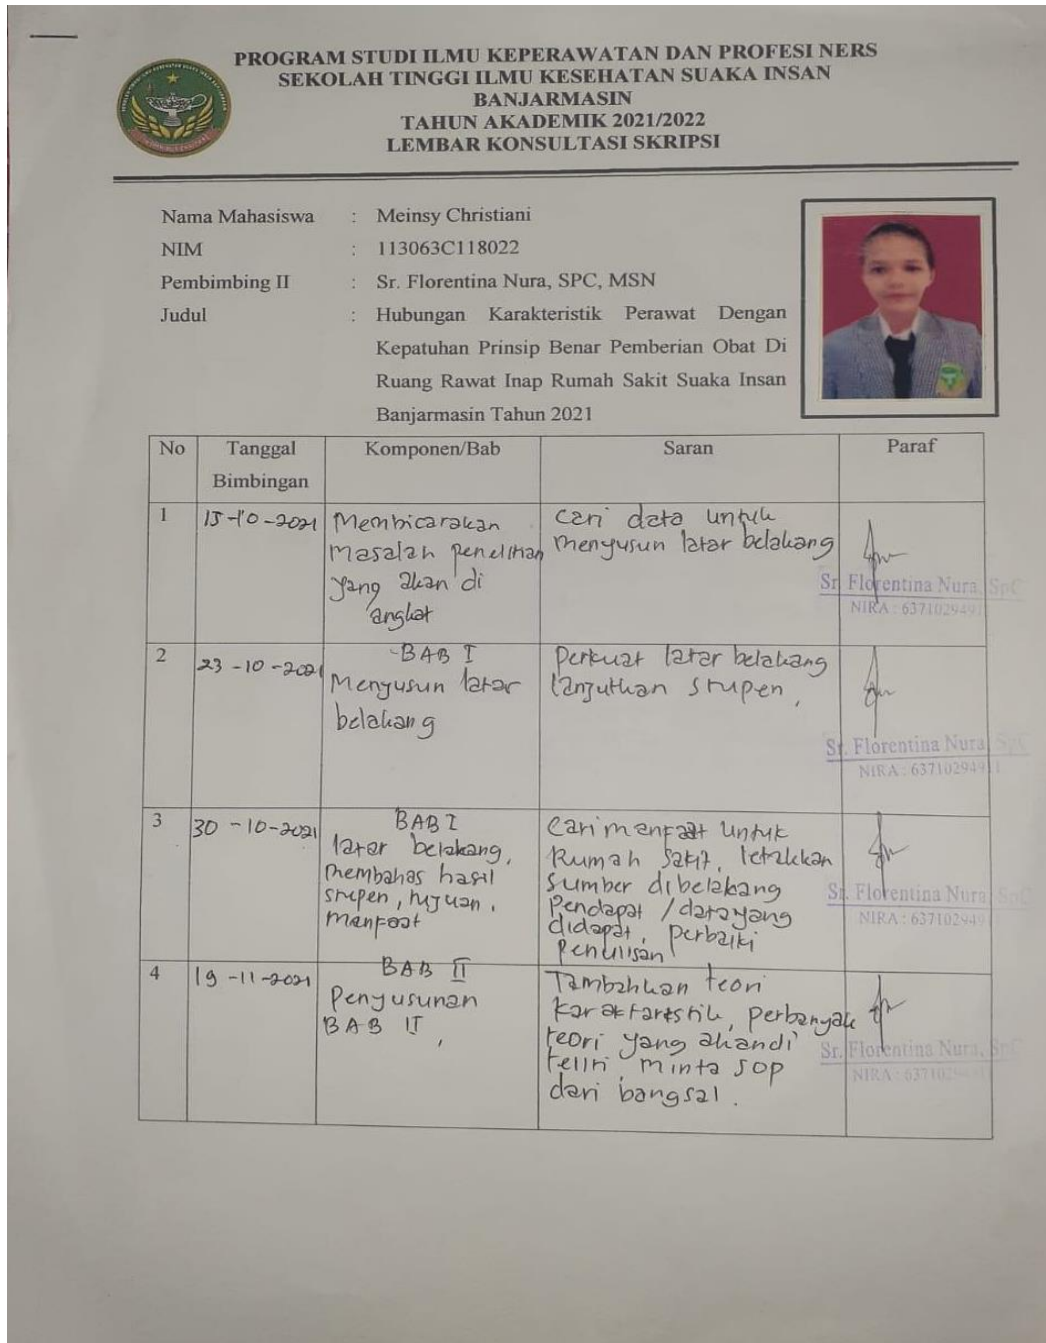 PROGRAM STUDI ILMU KEPERAWATAN DAN PROFESI NERS
SEKOLAH TINGGI ILMU KESEHATAN SUAKA INSAN
BANJARMASIN
TAHUN AKADEMIK 2021/2022
LEMBAR KONSULTASI SKRIPSI
Nama Mahasiswa : Meinsy Christiani
NIM : 113063C118022
Pembimbing II : Sr. Florentina Nura, SPC, MSN
Judul : Hubungan Karakteristik Perawat Dengan
Kepatuhan Prinsip Benar Pemberian Obat Di
Ruang Rawat Inap Rumah Sakit Suaka Insan
Banjarmasin Tahun 2021
No Tanggal Komponen/Bab Saran Paraf
Bimbingan
1
-10-2021
Membicarakan
masalah penelitian
yang akan di
angkat
cari data untuk
menyusun latar belakang
Sr. Florentina Nura, SpC
NIRA : 637102949
2
23-10-2021
-BAB I
Menyusun latar
belakang
perkuat latar belakang
lanjutkan stupen,
Sr. Florentina Nura, SpC
NIRA : 63710294911
3
30-10-2021
BAB I
latar belakang,
membahas hasil
stupen, tujuan,
manfaat
Cari manfaat untuk
Rumah Sakit, letakkan
sumber dibelakang
Pendapat / data yang
didapat, perbaiki
Penulisan
Sr. Florentina Nura, SpC
NIRA : 6371029491
4
19-11-2021
BAB II
Penyusunan
BAB II,
Tambahkan teori
perbanyak
teori yang akan di
teliti, minta sop
dari bangsal.
Sr. Florentina Nura, SpC
NIRA : 637102